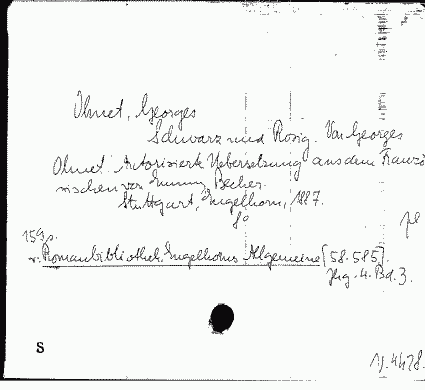 Ohnet, Georges
Schwarz und Rosig. Von Georges
Ohnet. Autorisierte Uebersetzung aus dem Franzö
sischen von Emmy Becher.
Stuttgart, Engelhorn, 1887.
8°
159 p.
v. Romanbibliothek, Engelhorns Allgemeine [58.585].
Jhg. 4. Bd. 3.
S